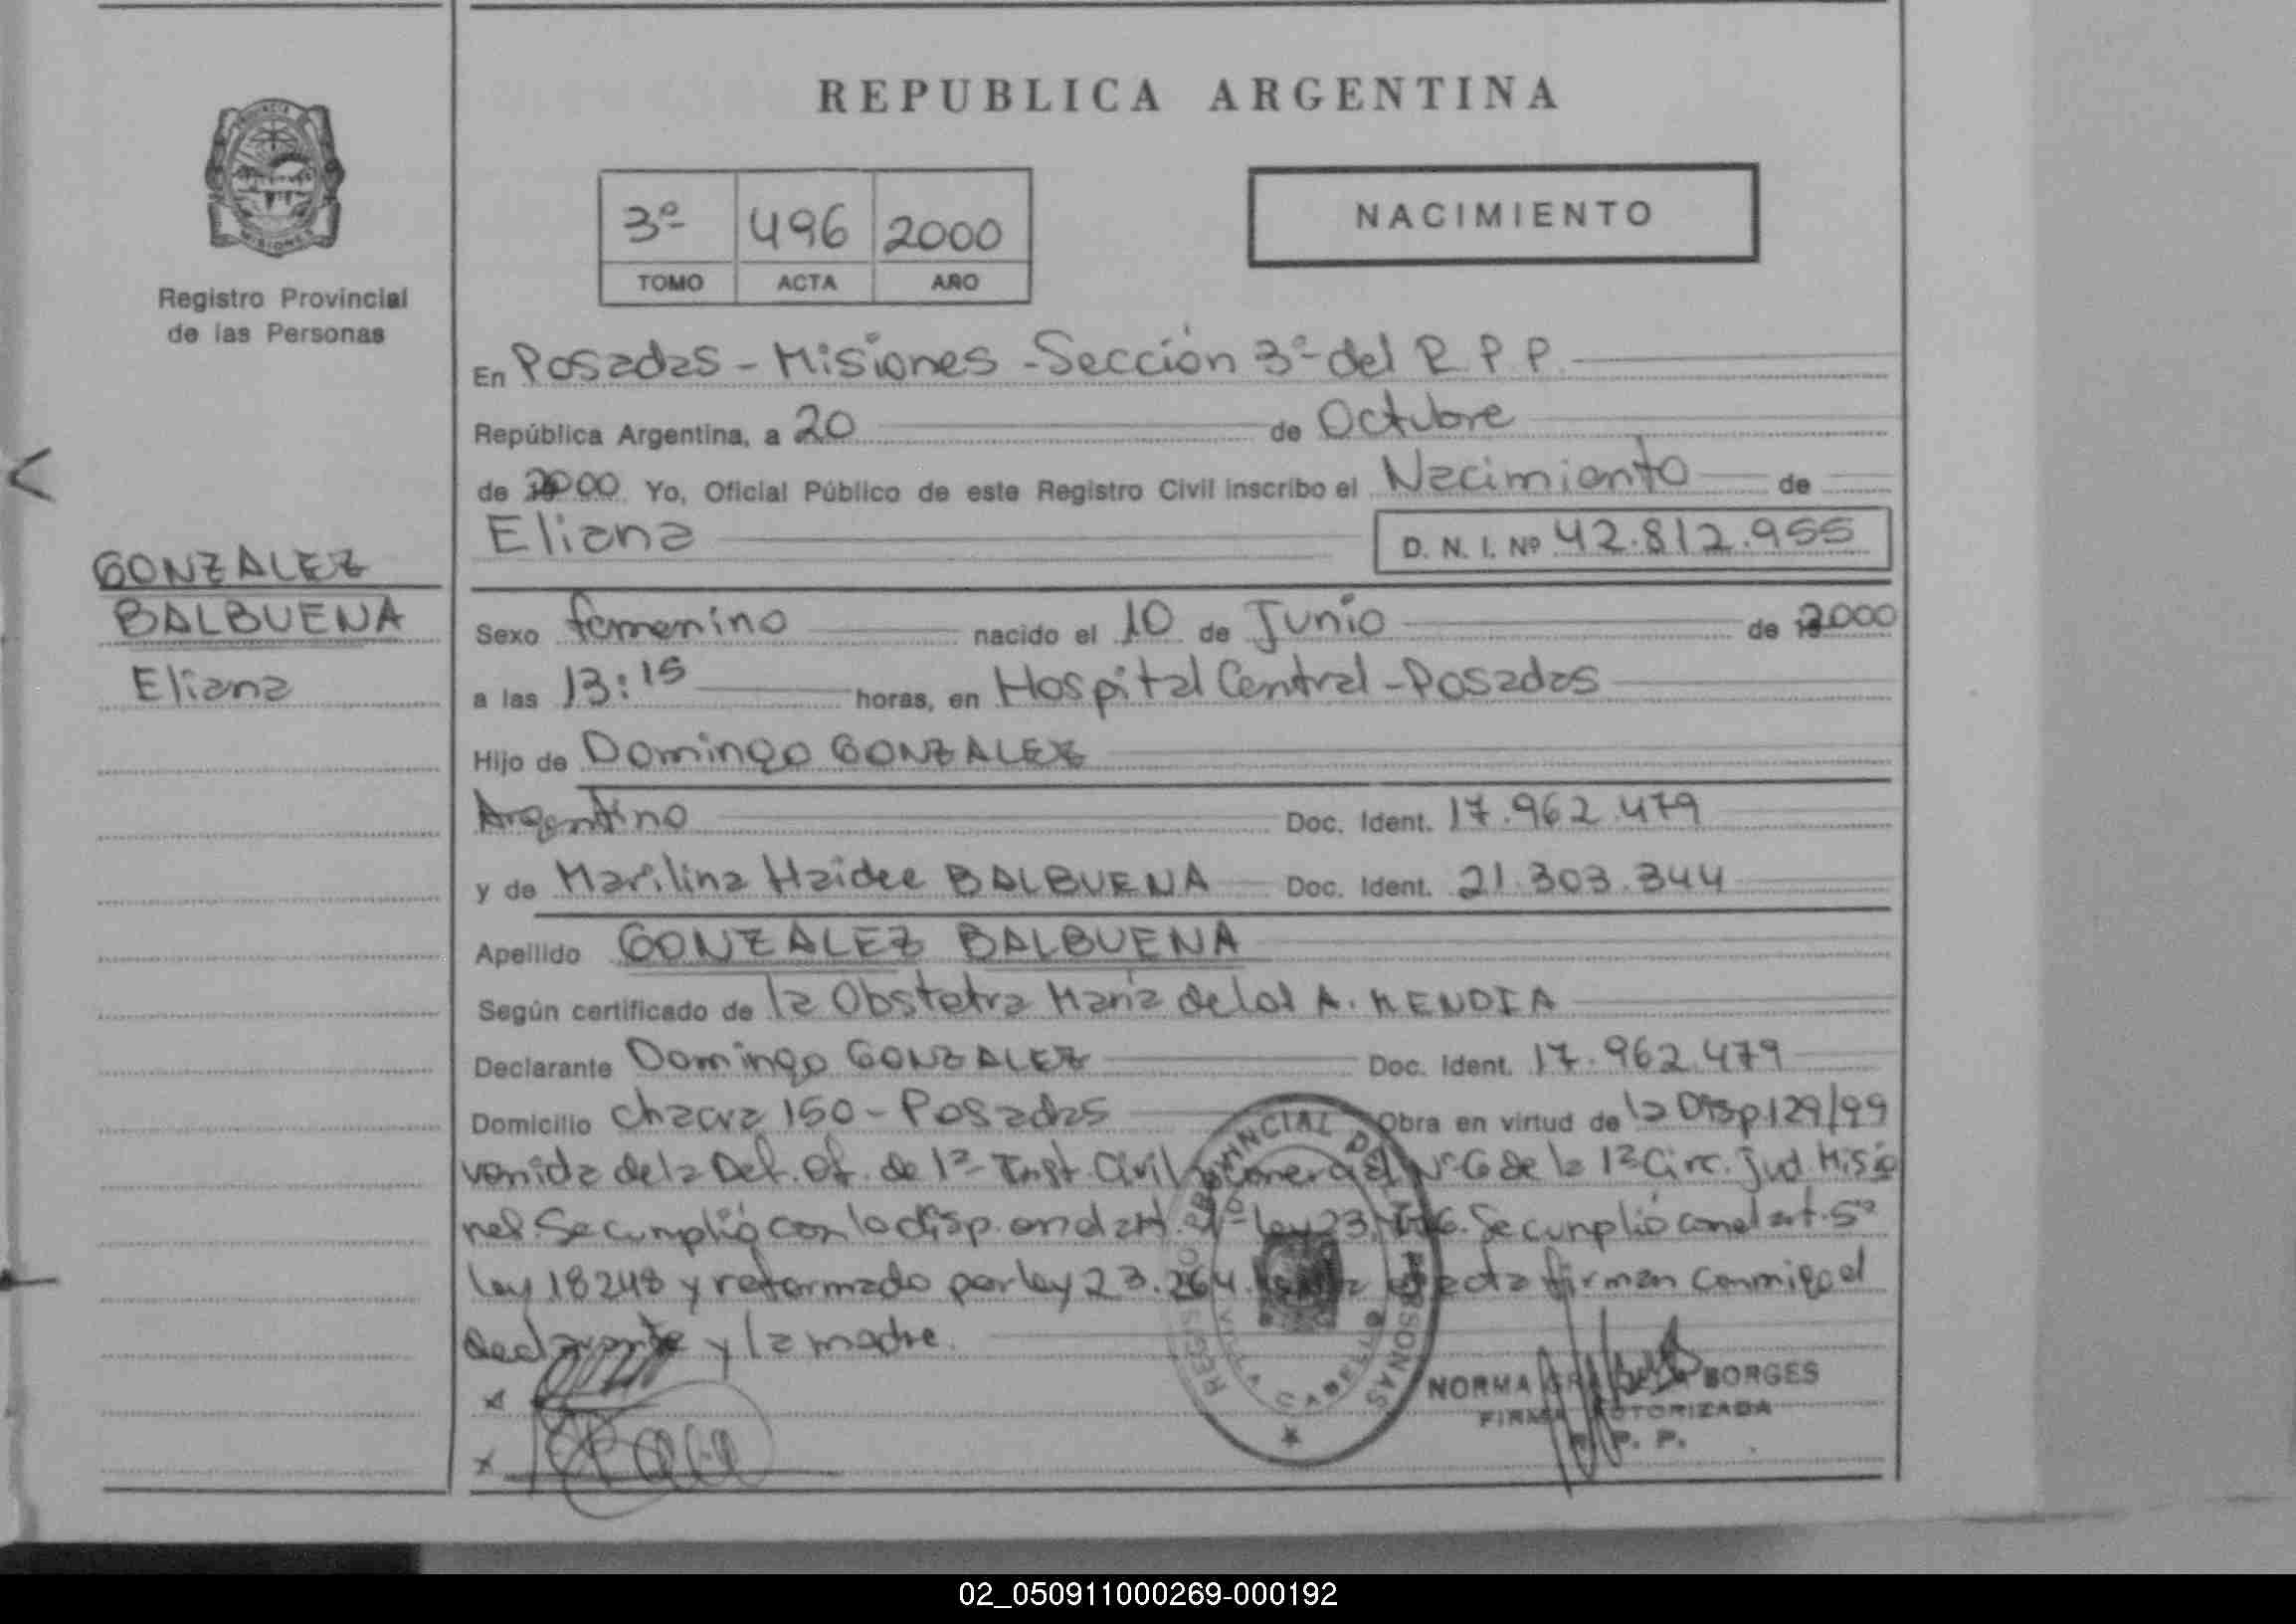 REPUBLICA ARGENTINA
3º 496 2000
TOMO ACTA AÑO
NACIMIENTO
Registro Provincial
de las Personas
En Posadas - Misiones - Sección 3ª del R.P.P.
República Argentina, a 20 de Octubre
de 2000 Yo, Oficial Público de este Registro Civil inscribo el Nacimiento de
Eliana D. N. I. Nº 42.812.955
GONZALEZ
BALBUENA
Eliana
Sexo femenino nacido el 10 de Junio de 2000
a las 13:15 horas, en Hospital Central - Posadas
Hijo de Domingo GONZALEZ
Argentino Doc. Ident. 17.962.479
y de Marilina Haidee BALBUENA Doc. Ident. 21.303.344
Apellido GONZALEZ BALBUENA
Según certificado de la Obstetra María de los A. MENDIA
Declarante Domingo GONZALEZ Doc. Ident. 17.962.479
Domicilio chacra 150 - Posadas Obra en virtud de la Disp 129/99
venida de la Def. Of. de 1ª Inst. Civil y Comercial Nº 6 de la 1ª Circ. Jud. Misio
nes. Se cumplió con lo disp. en el art. ley Se cumplió con el art. 5º
ley 18248 y reformado por ley 23.264. acta firman conmigo el
declarante y la madre.
NORMA BORGES
FIRMA AUTORIZADA
R. P. P.
02_050911000269-000192